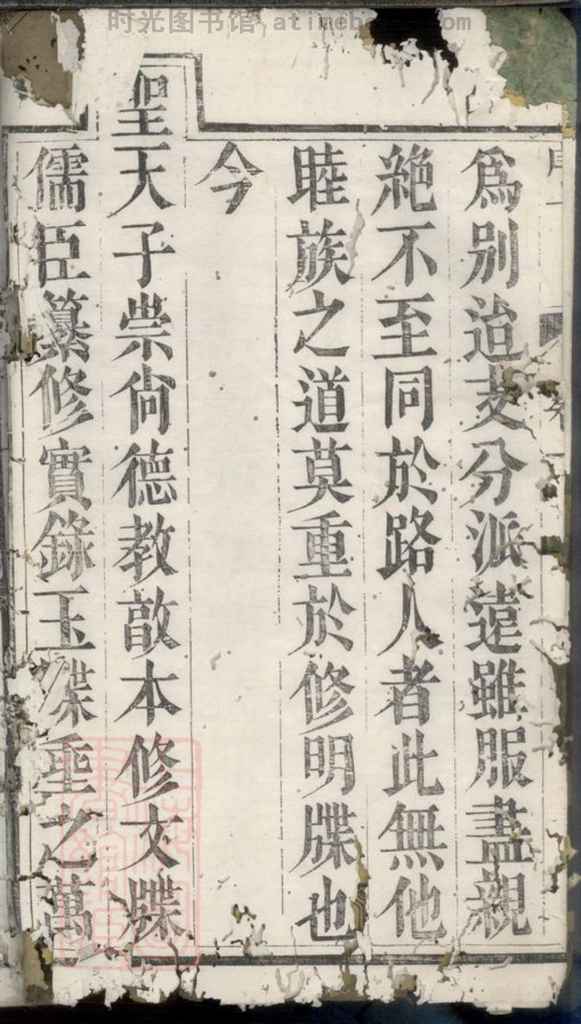 为別迨支分派遠雖服盡親
絶不至同於路人者此無他
睦族之道莫重於修明牒也
今
聖天子崇尙德教敔本修文牒
儒臣纂修實錄玉牒垂之萬
时光图书馆